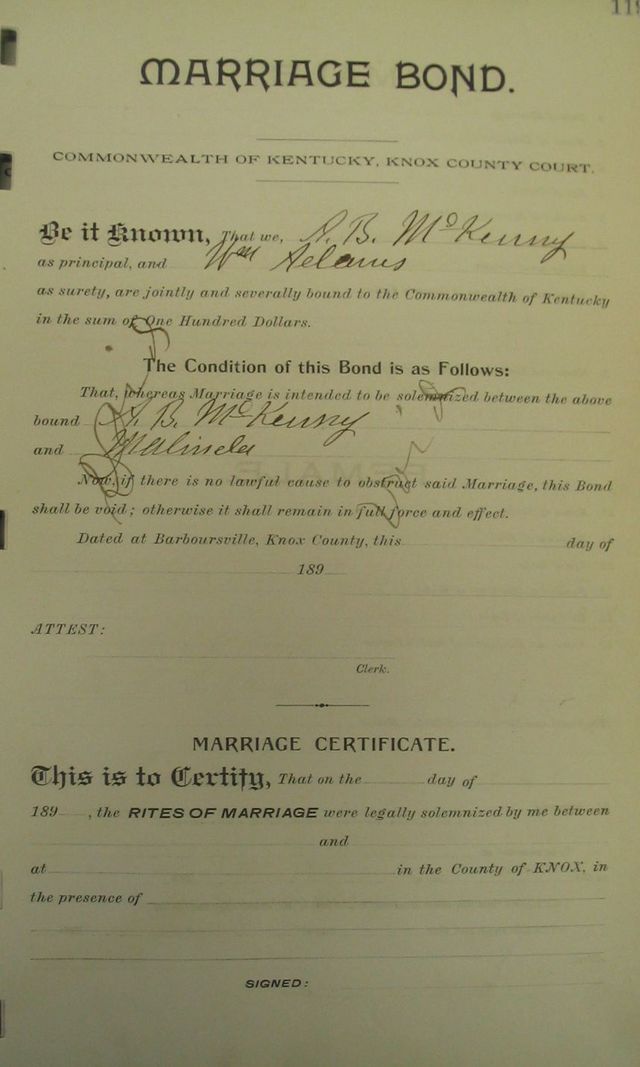 119
MARRIAGE BOND.
COMMONWEALTH OF KENTUCKY, KNOX COUNTY COURT.
Be it Known, That we, A. B. McKenny
as principal, and Wm Adams
as surety, are jointly and severally bound to the Commonwealth of Kentucky
in the sum of One Hundred Dollars.
The Condition of this Bond is as Follows:
That, whereas Marriage is intended to be solemnized between the above
bound A. B. McKenny
and Malinda
Now, if there is no lawful cause to obstruct said Marriage, this Bond
shall be void; otherwise it shall remain in full force and effect.
Dated at Barboursville, Knox County, this day of
189
ATTEST:
Clerk.
MARRIAGE CERTIFICATE.
This is to Certify, That on the day of
189 , the RITES OF MARRIAGE were legally solemnized by me between
and
at in the County of KNOX, in
the presence of
SIGNED: